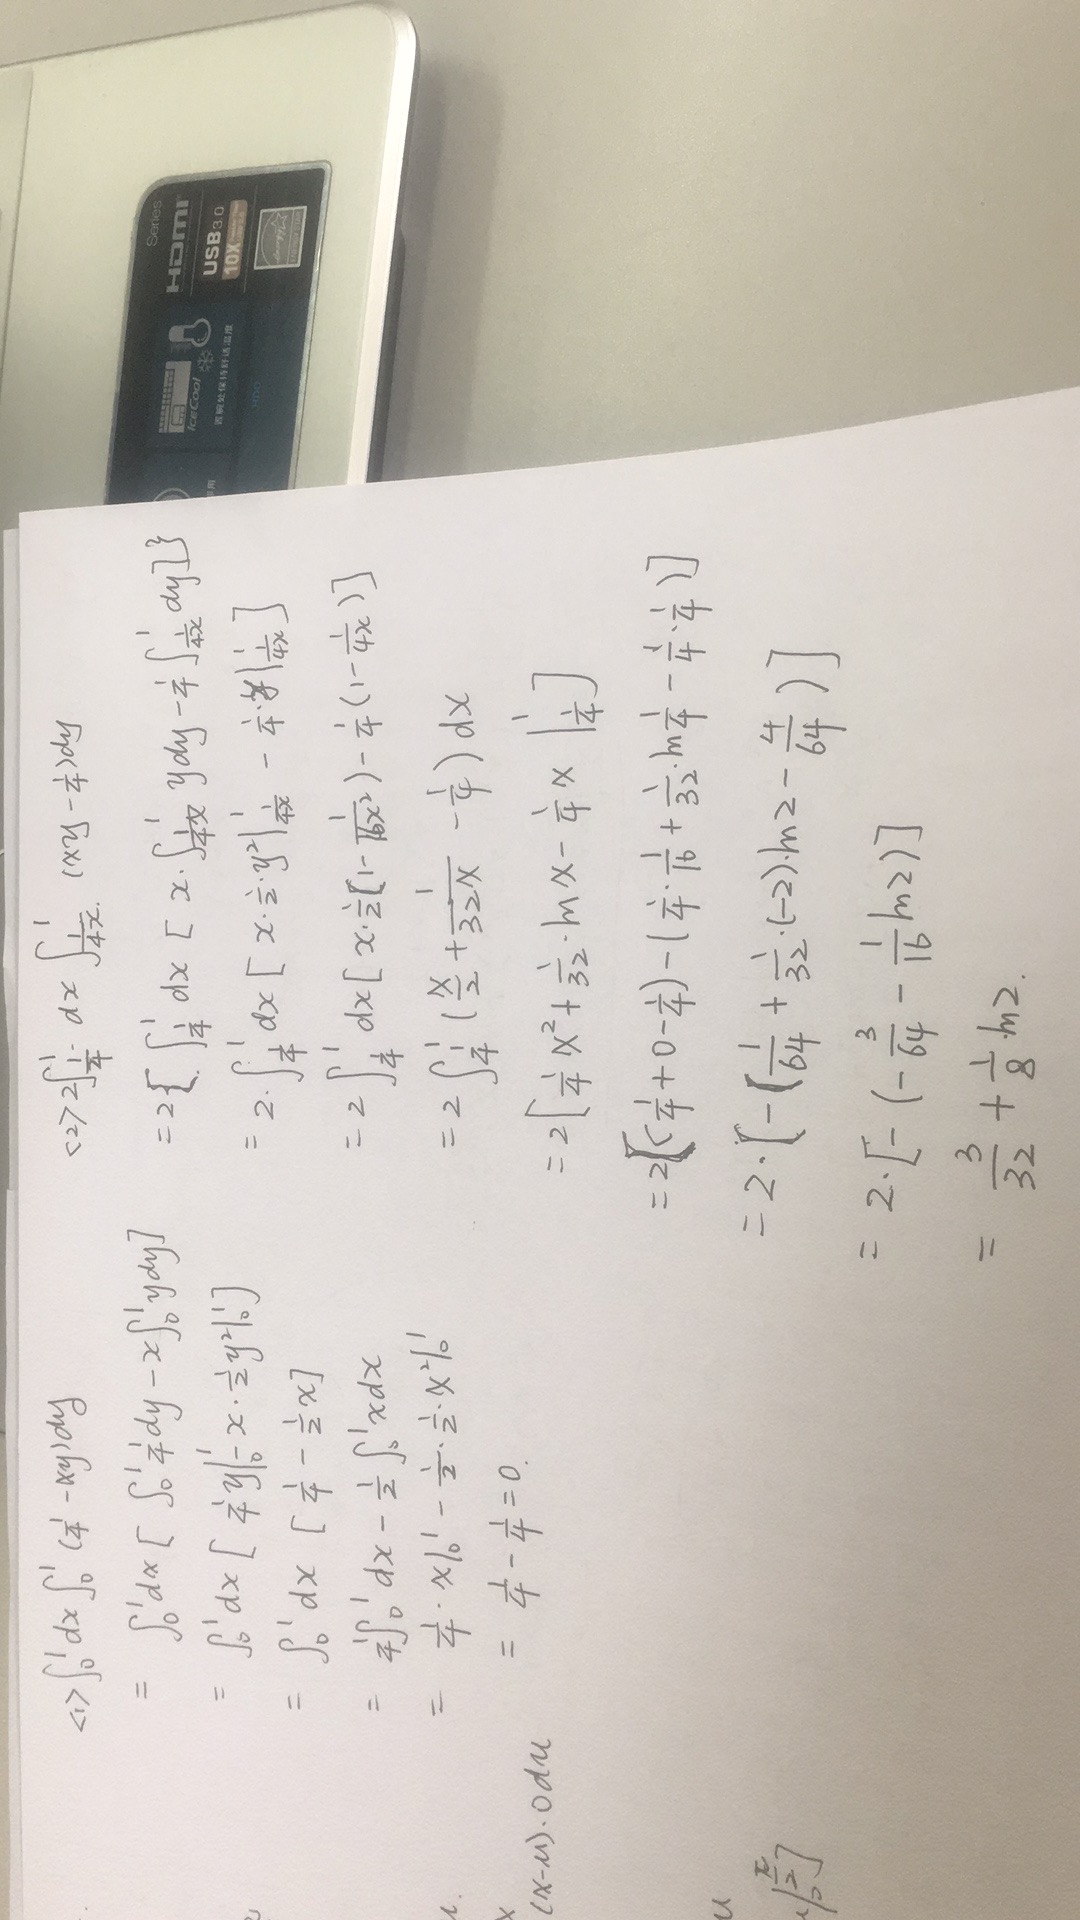 Series
HDMI
USB 3.0
10X
IceCool
置腕处保持舒适温度
<1> ∫₀¹dx∫₀¹(1/4-xy)dy
= ∫₀¹dx[∫₀¹1/4dy-x∫₀¹ydy]
= ∫₀¹dx[1/4y|₀¹-x·1/2y²|₀¹]
= ∫₀¹dx[1/4-1/2x]
= 1/4∫₀¹dx-1/2∫₀¹xdx
= 1/4·x|₀¹-1/2·1/2·x²|₀¹
= 1/4-1/4=0.
<2> 2∫_{1/4}^{1}dx∫_{1/4x}^{1}(xy-1/4)dy
=2{∫_{1/4}^{1}dx[x·∫_{1/4x}^{1}ydy-1/4∫_{1/4x}^{1}dy]}
=2·∫_{1/4}^{1}dx[x·1/2·y²|_{1/4x}^{1}-1/4·y|_{1/4x}^{1}]
=2∫_{1/4}^{1}dx[x·1/2[1-1/16x²)-1/4(1-1/4x)]
=2∫_{1/4}^{1}(x/2+1/32x-1/4)dx
=2[1/4x²+1/32·lnx-1/4x|_{1/4}^{1}]
=2[(1/4+0-1/4)-(1/4·1/16+1/32·ln1/4-1/4·1/4)]
=2·[-(1/64+1/32·(-2)·ln2-4/64)]
=2·[-(-3/64-1/16ln2)]
=3/32+1/8·ln2.
(x-u)·0du